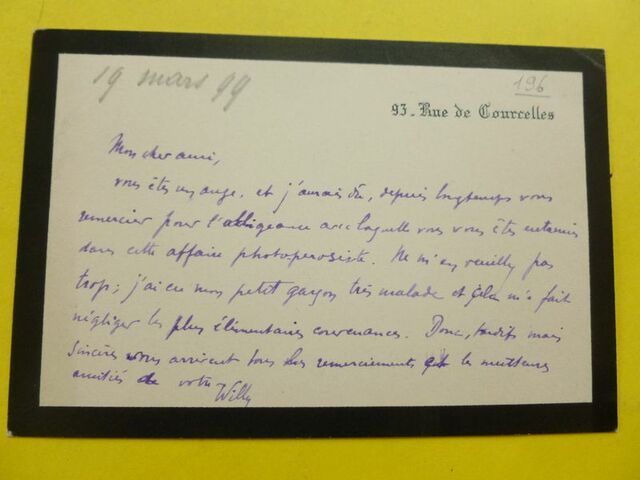 19 mars 99
196
93 - Rue de Courcelles
Mon cher ami,
vous êtes un ange, et j'aurais dû, depuis longtemps vous
remercier pour l'obligeance avec laquelle vous vous êtes entremis
dans cette affaire photo. Ne m'en veuillez pas
trop; j'ai eu mon petit garçon très malade et cela m'a fait
négliger les plus élémentaires convenances. Donc, tardifs mais
sincères vous arrivent tous les remerciements et les meilleures
amitiés de votre
Willy